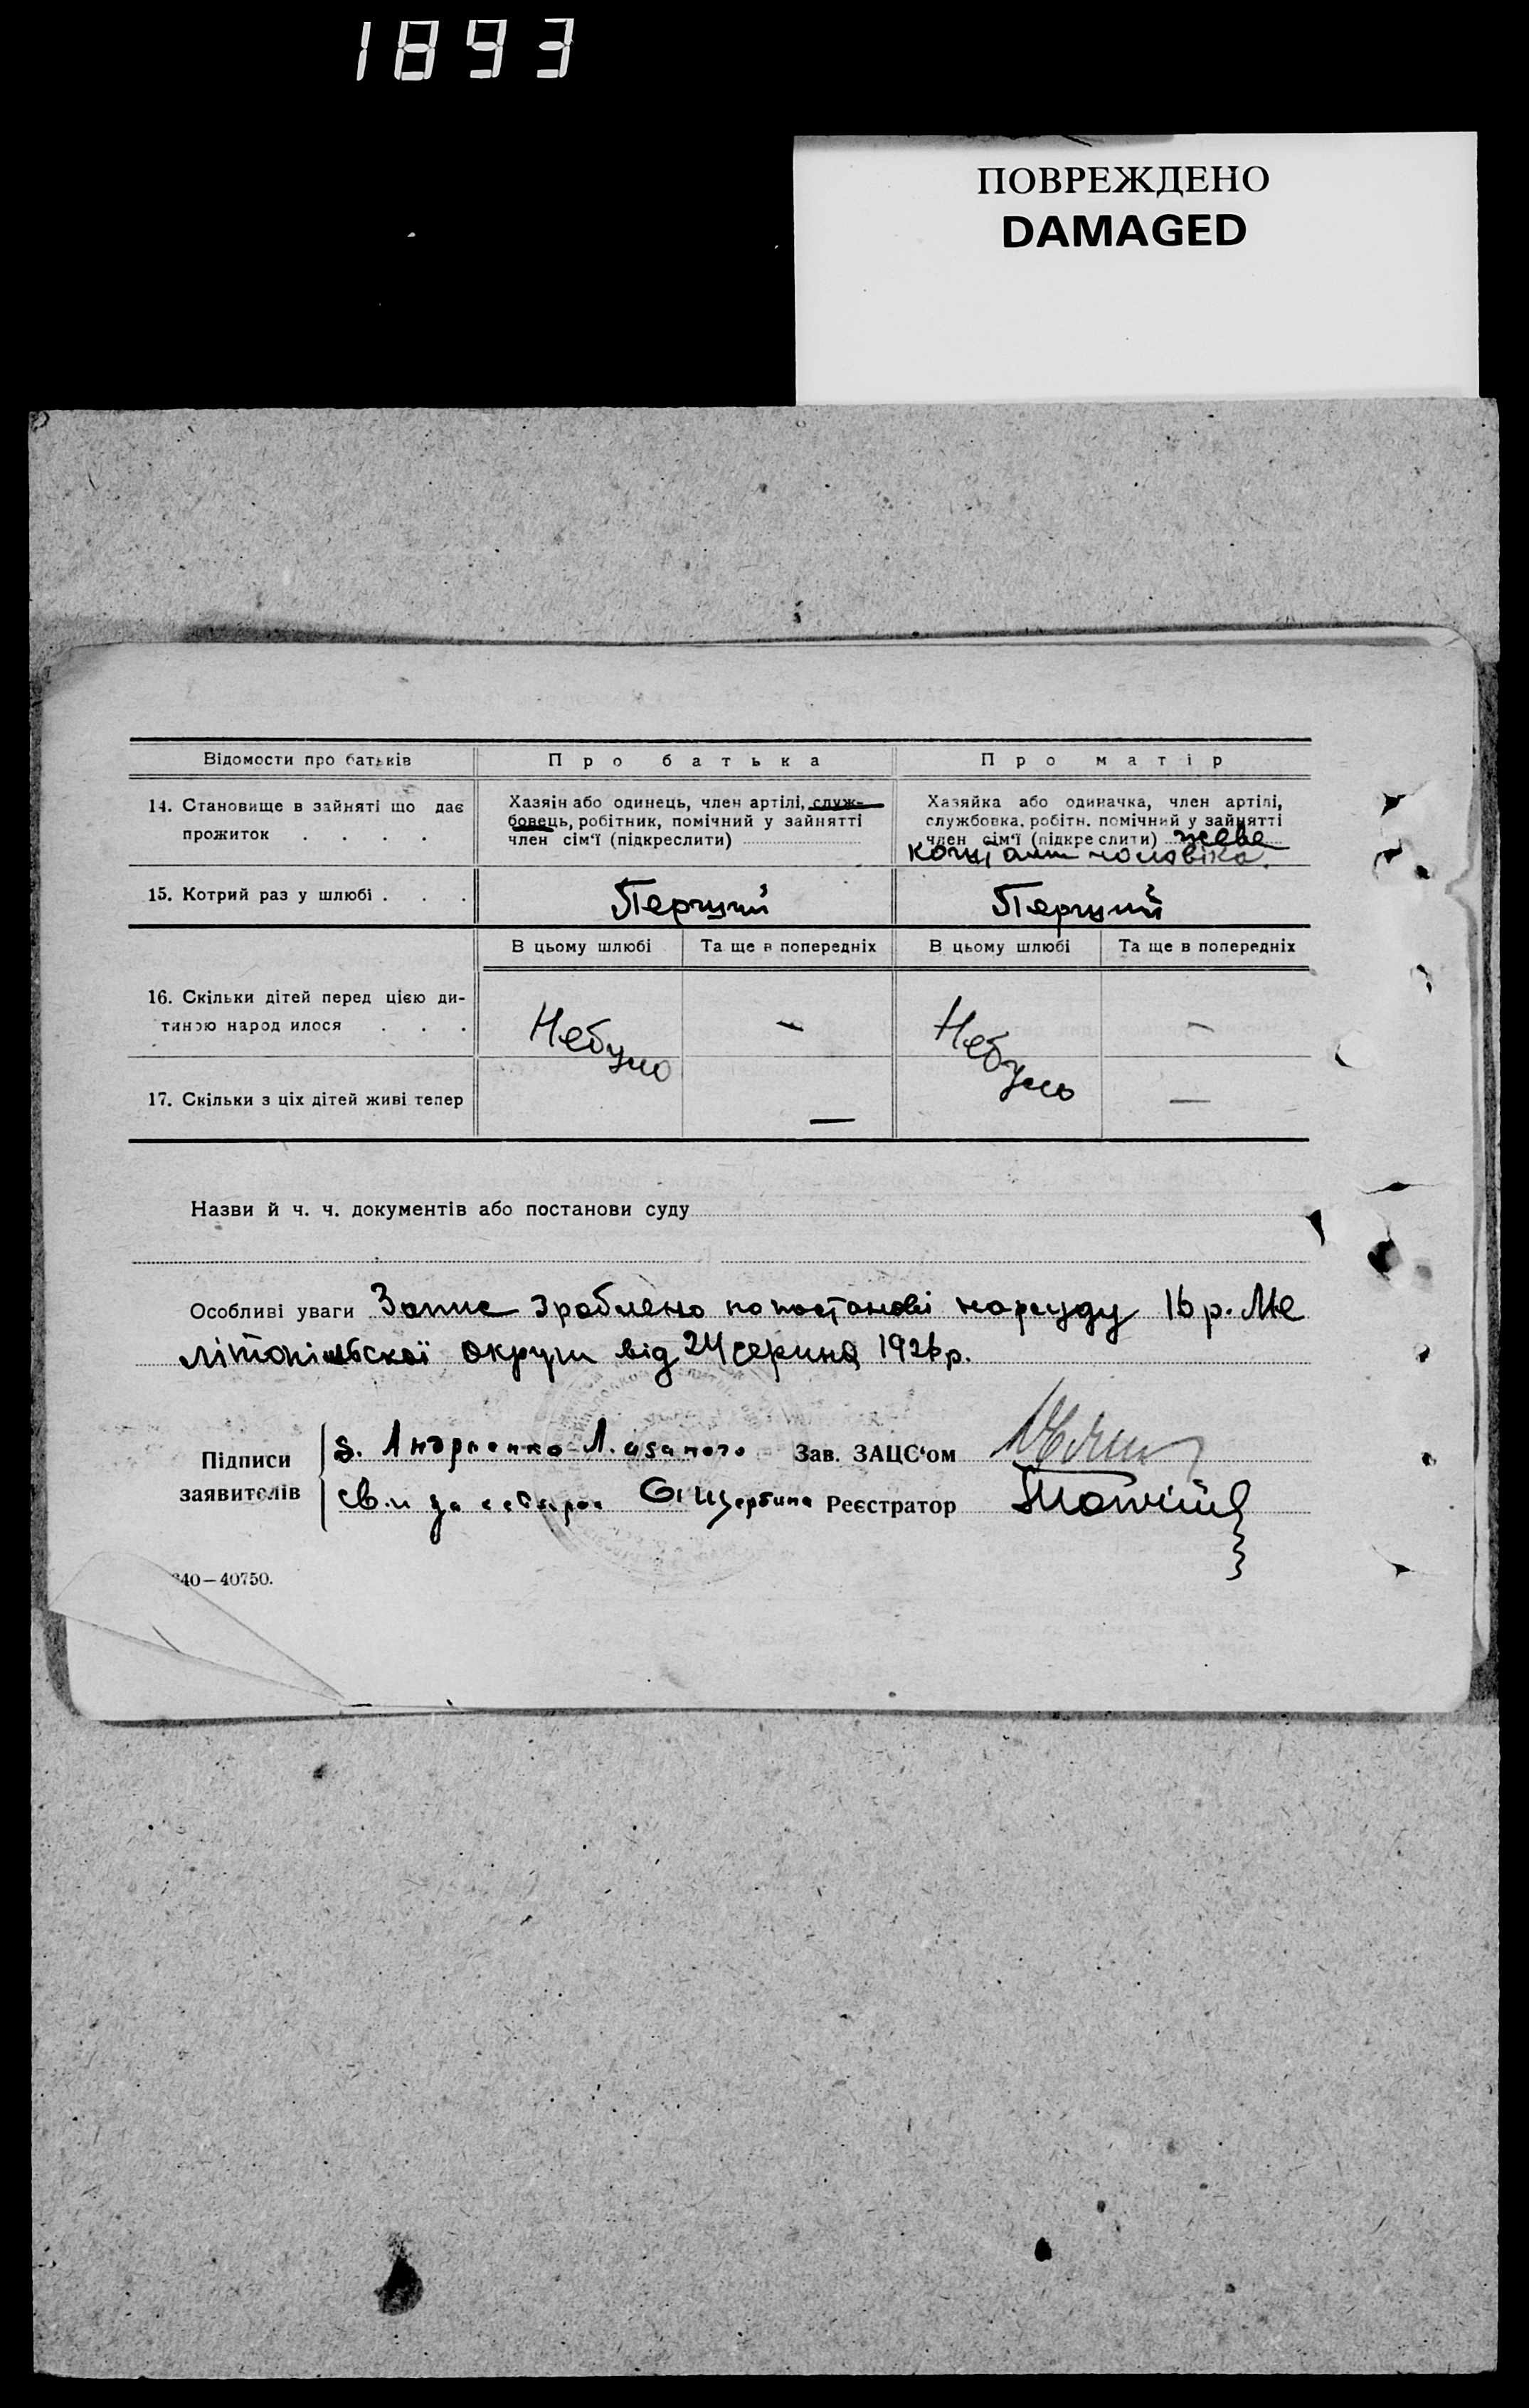 1893
ПОВРЕЖДЕНО
DAMAGED
Відомости про батьків
Про батька
Про матір
14. Становище в зайняті що дає
прожиток . . . .
Хазяін або одинець, член артілі, служ-
бовець, робітник, помічний у зайнятті
член сім'ї (підкреслити)
Хазяйка або одиначка, член артілі,
службовка, робітн. помічний у зайнятті
член сім'ї (підкреслити) живе
кошт чоловіка.
15. Котрий раз у шлюбі . . .
Перший
Перший
В цьому шлюбі
Та ще в попередніх
В цьому шлюбі
Та ще в попередніх
16. Скільки дітей перед цією ди-
тиною народилося . . .
Небуло
—
Небуло
—
17. Скільки з ціх дітей живі тепер
—
—
Назви й ч. ч. документів або постанови суду
Особливі уваги Запис зроблено по постанові нарсуду 16 р. Ме
літопільскої округи від 24 серпня 1926 р.
Підписи
заявителів
Андриенко
Щербина
Зав. ЗАЦС'ом
Реєстратор
40—40750.